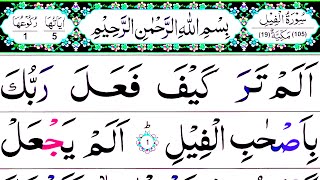 سُوْرَةُ الْفِيْلِ مَكِّيَّةٌ (105) (19) بِسْمِ اللّٰهِ الرَّحْمٰنِ الرَّحِيْمِ اٰيَاتُهَا 5 رُكُوْعُهَا 1
اَلَمْ تَرَ كَيْفَ فَعَلَ رَبُّكَ
بِاَصْحٰبِ الْفِيْلِ ؕ ۝۱ اَلَمْ يَجْعَلْ